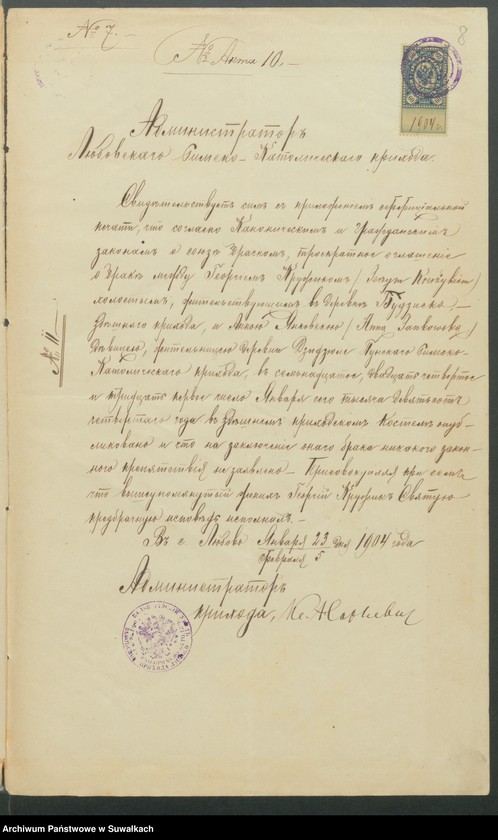 № 7. —
8
№ Акта 10. —
1904 г.
Администраторъ
Любовскаго Римско-Католическаго прихода.
Свидѣтельствуетъ симъ съ приложеніемъ оффиціальной
печати, что согласно Каноническимъ и Гражданскимъ
законамъ о союзѣ брачномъ, троекратное оглашеніе
о бракѣ между Георгіемъ
холостымъ, жительствующимъ въ деревнѣ
здѣшняго прихода, и Анною Янковскою / Anna Jankowska /
дѣвицею, жительницею деревни Пунскаго Римско-
Католическаго прихода, въ семнадцатое, двадцать четвертое
и тридцать первое число Января сего тысяча девятьсотъ
четвертаго года въ здѣшнемъ приходскомъ Костелѣ опуб-
ликовано и что на заключеніе онаго брака никакого закон-
наго препятствія не заявлено. — Присовокупляя при семъ
что вышеупомянутый женихъ Георгій Святую
предбрачную исповѣдь исполнилъ. —
№ 11
Въ с. Любово Января 23 дня 1904 года
Февраля 5
Администраторъ
прихода, Кс.
Archiwum Państwowe w Suwałkach